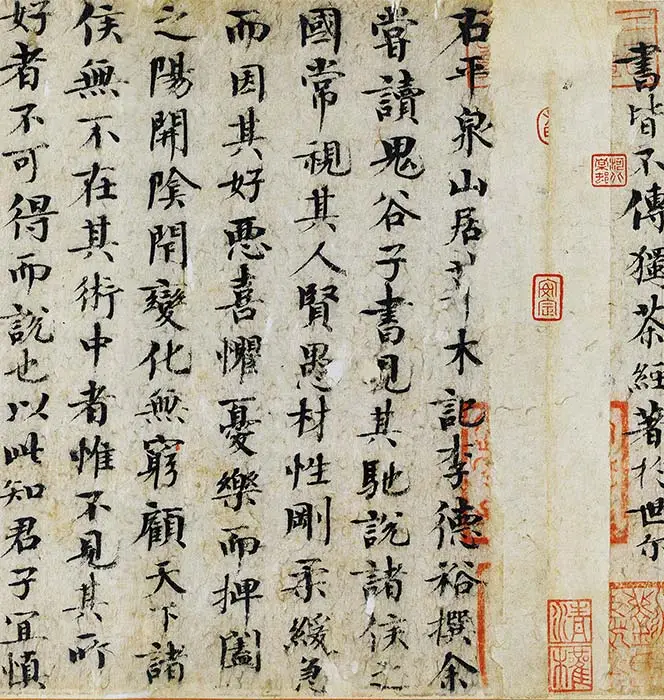 書皆不傳獨茶經著於世尔
右平泉山居草木記李德裕撰余
嘗讀鬼谷子書見其馳說諸侯之
國常視其人賢愚材性剛柔緩急
而因其好惡喜懼憂樂而捭闔
之陽開陰閉變化無窮顧天下諸
侯無不在其術中者惟不見其所
好者不可得而說也以此知君子宜慎